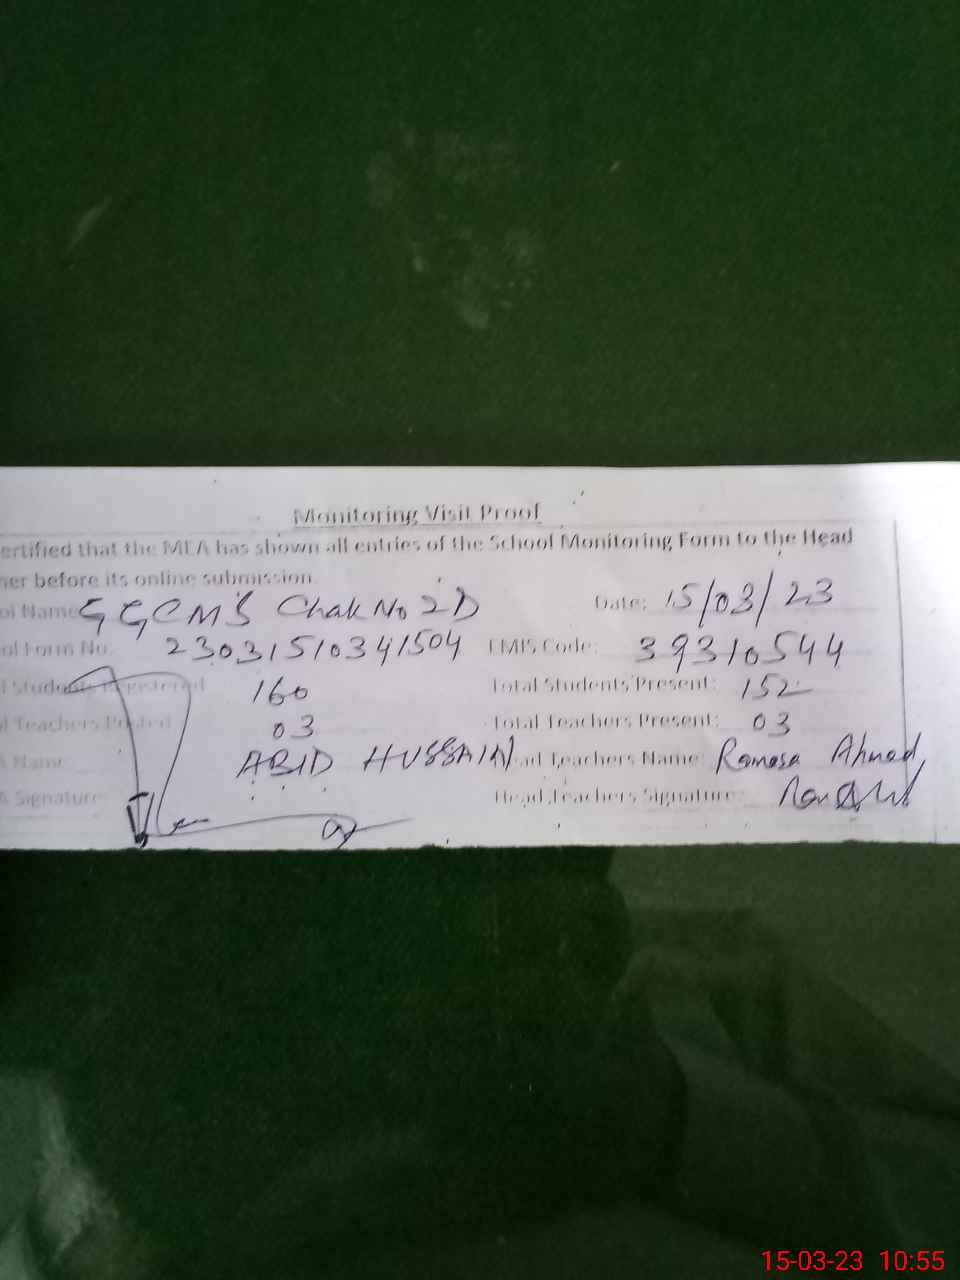 Monitoring Visit Proof
ertified that the MEA has shown all entries of the School Monitoring Form to the Head
her before its online submission.
ol Name GGCMS Chak No 2D Date: 15/03/23
ol Form No. 23031510341504 EMIS Code: 39310544
l Students Registered 160 Total Students Present: 152
l Teachers Posted 03 Total Teachers Present: 03
A Name ABID HUSSAIN ad Teachers Name: Ramosa Ahmad
A Signature Head Teachers Signature:
15-03-23 10:55